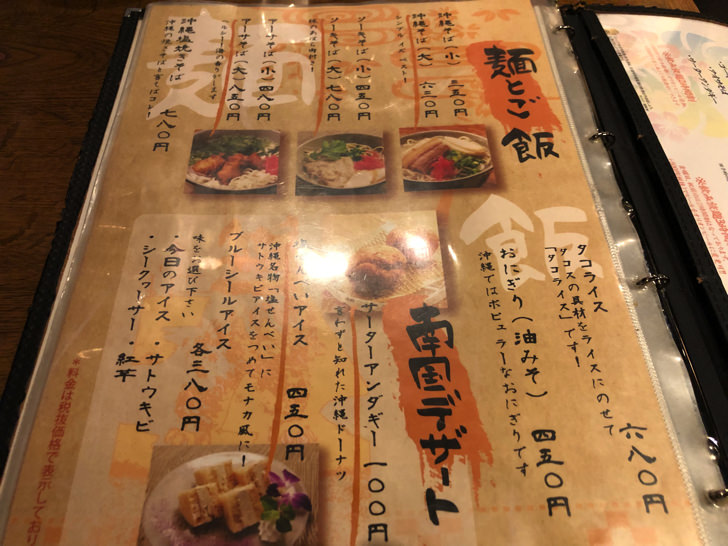 麺とご飯
麺
沖縄そば(小) 三五〇円
沖縄そば(大) 六三〇円
シンプルイズベスト!
ソーキそば(小) 四五〇円
ソーキそば(大) 七八〇円
豚のあばら肉付き!
アーサそば(小) 四八〇円
アーサそば(大) 八五〇円
沖縄塩焼きそば 七八〇円
沖縄の焼きそばと言えばコレ!
飯
タコライス 六八〇円
タコスの具材をライスにのせて
「タコライス」です!
おにぎり(油みそ) 四五〇円
沖縄ではポピュラーなおにぎりです
南国デザート
サーターアンダギー 一〇〇円
言わずと知れた沖縄ドーナツ
んべいアイス 四五〇円
沖縄名物「塩せんべい」に
サトウキビアイスをつめてモナカ風に!
ブルーシールアイス 各三八〇円
味をお選び下さい
・今日のアイス ・サトウキビ
・シークヮーサー ・紅芋
*料金は税抜価格で表示しており